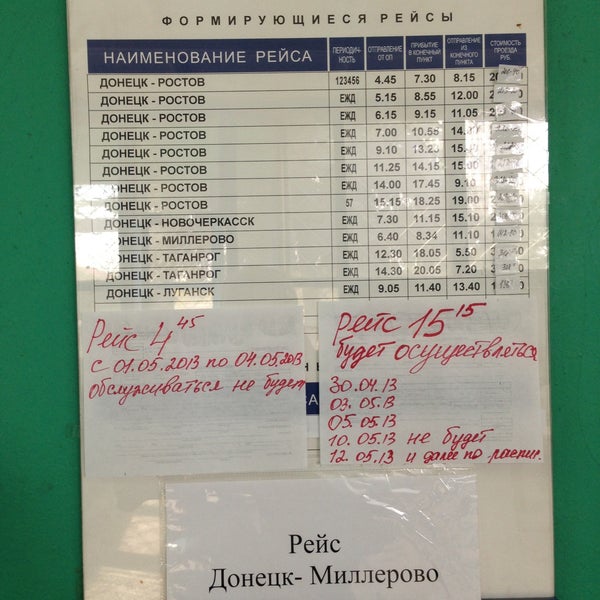 ФОРМИРУЮЩИЕСЯ РЕЙСЫ
НАИМЕНОВАНИЕ РЕЙСА ПЕРИОДИЧ-НОСТЬ ОТПРАВЛЕНИЕ ОТ ОП ПРИБЫТИЕ В КОНЕЧНЫЙ ПУНКТ ОТПРАВЛЕНИЕ ИЗ КОНЕЧНОГО ПУНКТА СТОИМОСТЬ ПРОЕЗДА РУБ.
ДОНЕЦК - РОСТОВ 123456 4.45 7.30 8.15
ДОНЕЦК - РОСТОВ ЕЖД 5.15 8.55 12.00
ДОНЕЦК - РОСТОВ ЕЖД 6.15 9.15 11.05
ДОНЕЦК - РОСТОВ ЕЖД 7.00 10.55
ДОНЕЦК - РОСТОВ ЕЖД 9.10 13.25
ДОНЕЦК - РОСТОВ ЕЖД 11.25 14.15 15.00
ДОНЕЦК - РОСТОВ ЕЖД 14.00 17.45 9.10
ДОНЕЦК - РОСТОВ 57 15.15 18.25 19.00
ДОНЕЦК - НОВОЧЕРКАССК ЕЖД 7.30 11.15 15.10
ДОНЕЦК - МИЛЛЕРОВО ЕЖД 6.40 8.34 11.10
ДОНЕЦК - ТАГАНРОГ ЕЖД 12.30 18.05 5.50
ДОНЕЦК - ТАГАНРОГ ЕЖД 14.30 20.05 7.20
ДОНЕЦК - ЛУГАНСК ЕЖД 9.05 11.40 13.40
Рейс 4 45
с 01.05.2013 по 04.05.2013
обслуживаться не будет
Рейс 15 15
будет осуществляться
30.04.13
03.05.13
05.05.13
10.05.13 не будет
12.05.13 и далее по распис.
Рейс
Донецк- Миллерово